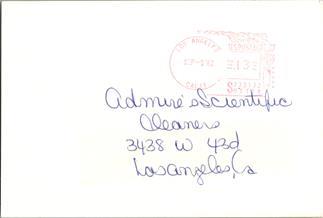 LOS ANGELES
CALIF
Admire's Scientific
Cleaners
3438 W 43d
Los Angeles, Ca